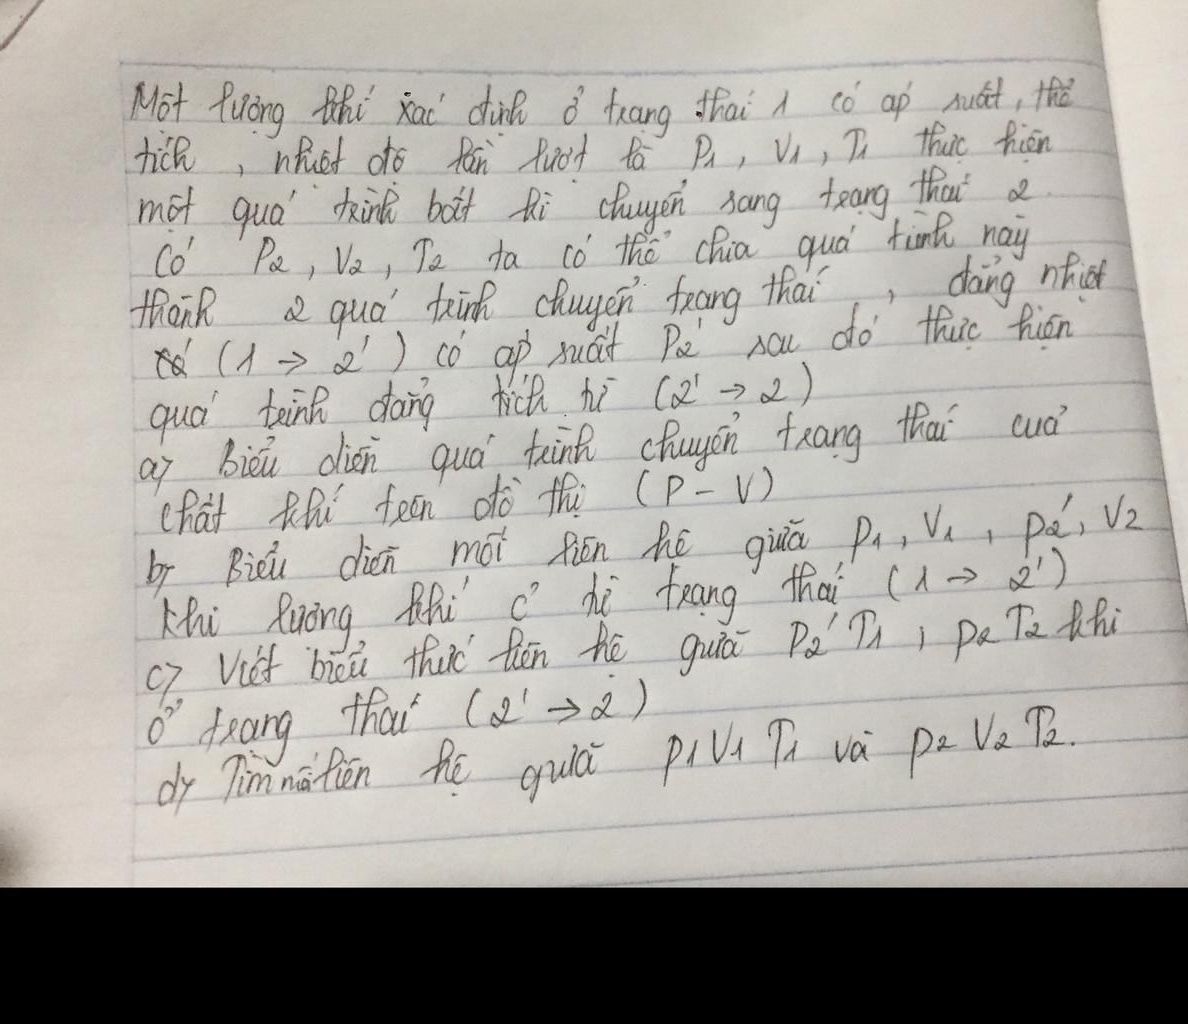 Một lượng khí xác định ở trạng thái 1 có áp suất, thể
tích, nhiệt độ lần lượt là P1, V1, T1 thực hiện
một quá trình bất kì chuyển sang trạng thái 2
có P2, V2, T2 ta có thể chia quá trình này
thành 2 quá trình chuyển trạng thái, đẳng nhiệt
từ (1 → 2') có áp suất P2' sau đó thực hiện
quá trình đẳng tích từ (2' → 2)
a) Biểu diễn quá trình chuyển trạng thái của
chất khí trên đồ thị (P - V)
b) Biểu diễn mối liên hệ giữa P1, V1, P2', V2
khi lượng khí ở từ trạng thái (1 → 2')
c) Viết biểu thức liên hệ giữa P2' T1, P2 T2 khi
ở trạng thái (2' → 2)
d) Tìm mối liên hệ giữa P1 V1 T1 và P2 V2 T2.